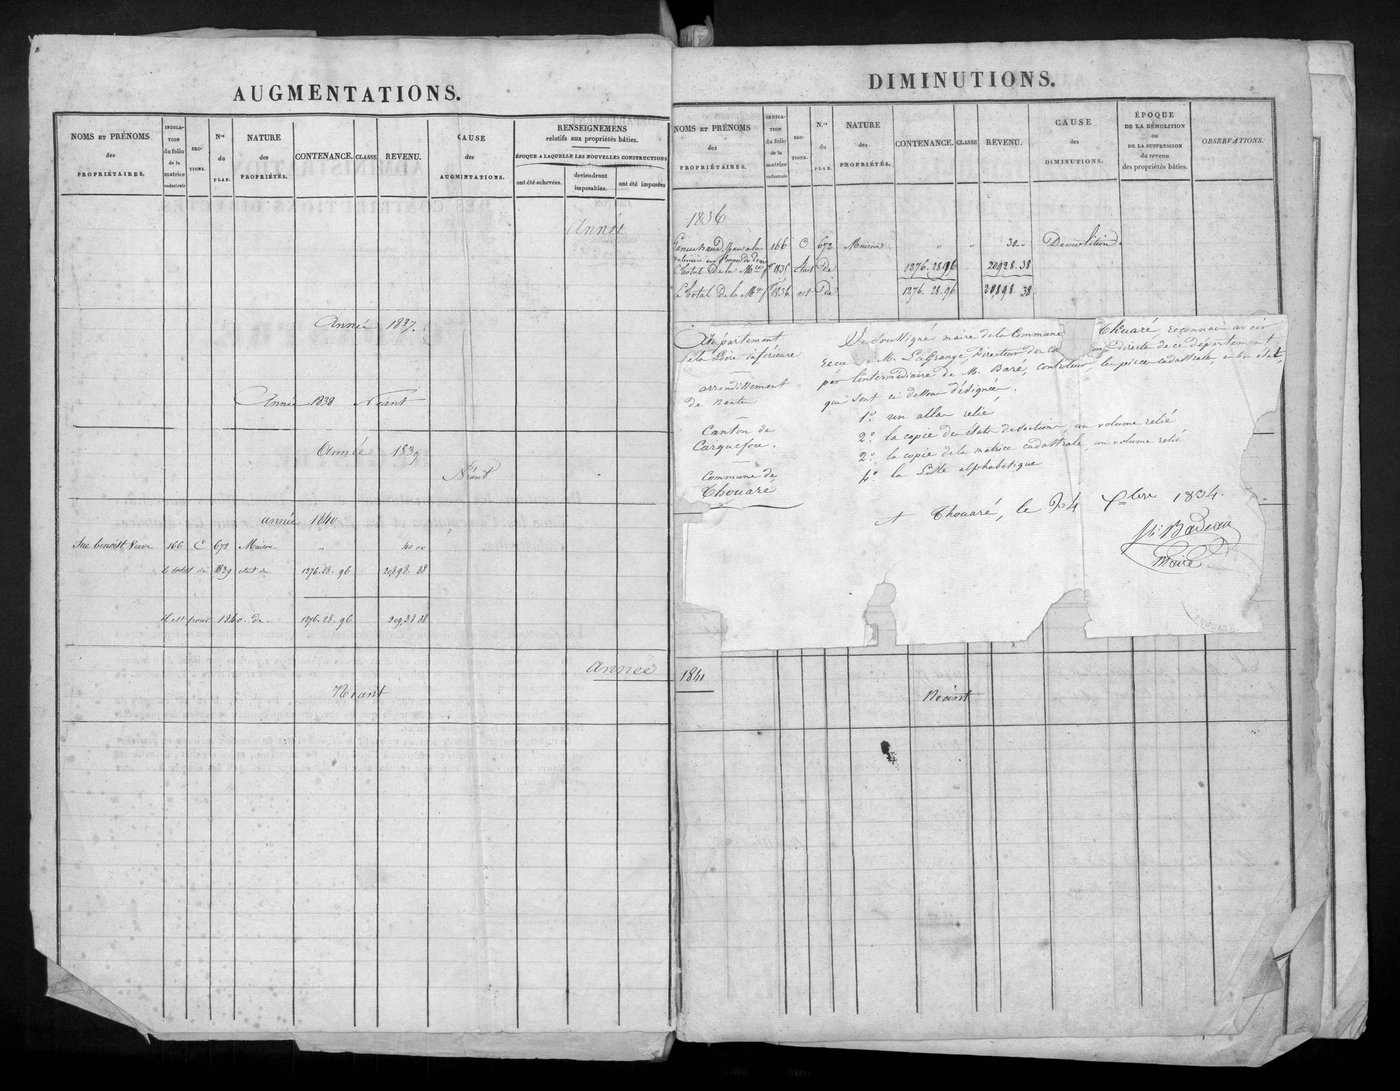 AUGMENTATIONS.
NOMS ET PRÉNOMS
des
PROPRIÉTAIRES.
INDICA-
TION
du folio
de la
matrice
cadastrale
SEC-
TIONS.
N.os
du
PLAN.
NATURE
des
PROPRIÉTÉS.
CONTENANCE.
CLASSE
REVENU.
CAUSE
des
AUGMENTATIONS.
RENSEIGNEMENS
relatifs aux propriétés bâties.
ÉPOQUE A LAQUELLE LES NOUVELLES CONSTRUCTIONS
ont été achevées.
deviendront
imposables.
ont été imposées
Année
Année 1837.
Année 1838 Néant
Année 1839
Néant
année 1840
Benoist Veuve 166 C 672 Maison " " 40 00
le total de 1839 était de 1276. 28. 96 20898. 38
Il est pour 1840. de 1276. 28. 96 209,38 38
année
Néant
DIMINUTIONS.
NOMS ET PRÉNOMS
des
PROPRIÉTAIRES.
INDICA-
TION
du folio
de la
matrice
cadastrale
SEC-
TIONS.
N.os
du
PLAN.
NATURE
des
PROPRIÉTÉS.
CONTENANCE.
CLASSE
REVENU.
CAUSE
des
DIMINUTIONS.
ÉPOQUE
DE LA DÉMOLITION
ou
DE LA SUPPRESSION
du revenu
des propriétés bâties.
OBSERVATIONS.
1836
166 C 672 Maison " " 30 " Démolition.
le total De la M.ce p.r 1835 était De 1276. 28. 96 20,928. 38
le total De la M.ce p.r 1836 est De 1276. 28. 96 20,898. 38
Département
de la Loire inférieure
arrondissement
de Nantes
Canton de
Carquefou.
Commune de
Thouaré
Je soussigné maire de la Commune Thouaré reconnais avoir
recu de M. LaGrange Directeur des Con directe de ce département
par l'intermédiaire de M. Baré, controleur, les pieces cadastrales, en bon état,
qui sont ci dessous désignées.
1.o un atlas relié
2.o la copie des états de sections, un volume relié
2.o la copie de la matrice cadastrale, un volume relié
4.o la Liste alphabetique
A Thouaré, le 24 Xbre 1834.
Badeau
Maire
THOUARÉ
1841
Néant